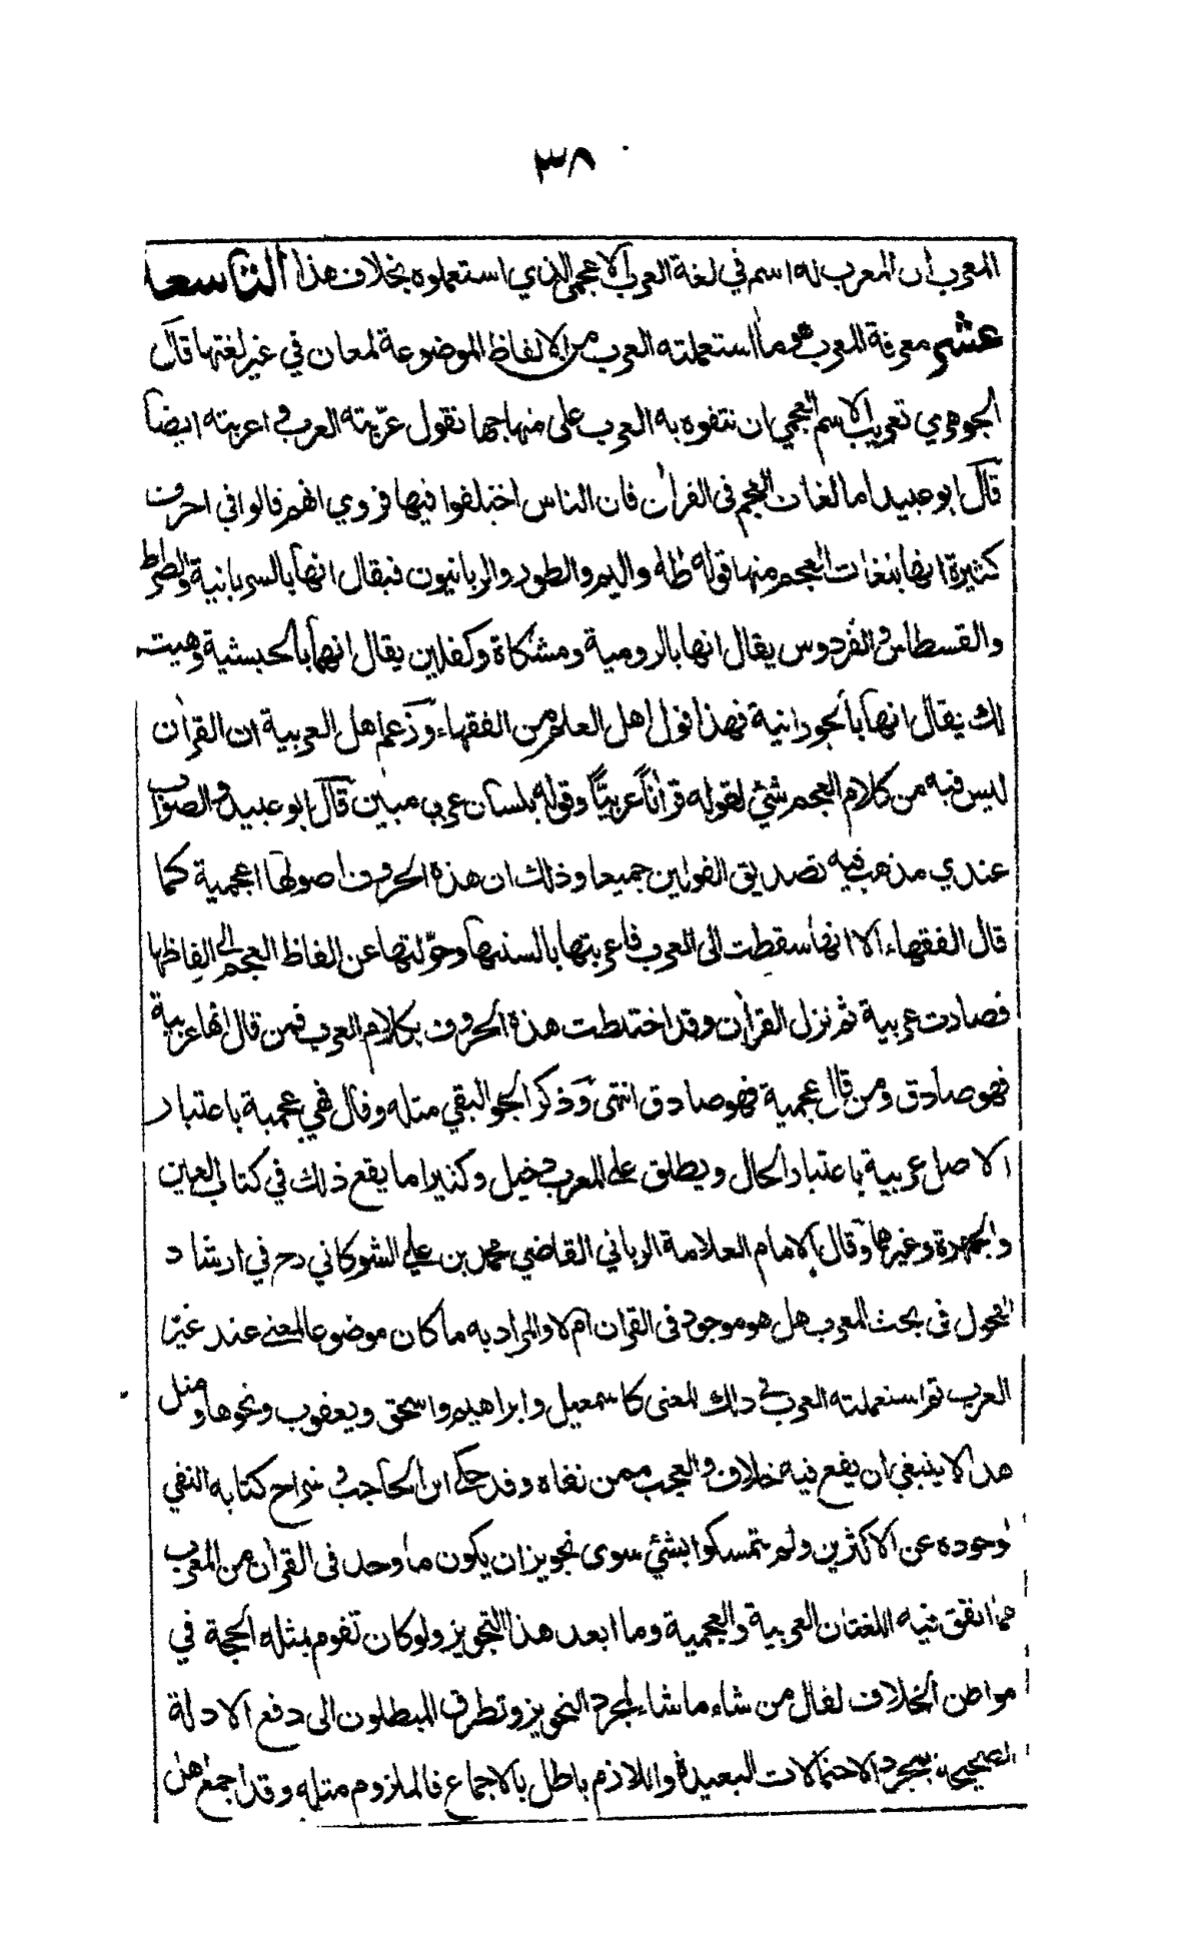 ٣٨
المعرب ان المعرب له اسم في لغة العرب الاعجمي الذي استعملوه بخلاف هذا التاسعة
عشر معرفة المعرب هو ما استعملته العرب من الالفاظ الموضوعة لمعان في غير لغتها قال
الجوهري تعريب الاسم العجمي ان تتفوه به العرب على منهاجها تقول عرّبته العرب واعربته ايضا
قال ابو عبيد اما لغات العجم في القران فان الناس اختلفوا فيها فروي انهم قالوا في احرف
كثيرة انها بلغات العجم منها قوله طه واليم والطور والربانيون فيقال انها بالسريانية والصراط
والقسطاس والفردوس يقال انها بالرومية ومشكاة وكفلين يقال انها بالحبشية وهيت
لك يقال انها بالحورانية فهذا قول اهل العلم من الفقهاء وزعم اهل العربية ان القران
ليس فيه من كلام العجم شئ لقوله قرانًا عربيًّا وقوله بلسان عربي مبين قال ابو عبيد والصواب
عندي مذهب فيه تصديق القولين جميعا وذلك ان هذه الحروف اصولها اعجمية كما
قال الفقهاء الا انها سقطت الى العرب فاعربتها بالسنتها وحوّلتها عن الفاظ العجم الى الفاظها
فصارت عربية ثم نزل القران وقد اختلطت هذه الحروف بكلام العرب فمن قال انها عربية
فهو صادق ومن قال عجمية فهو صادق انتهى وذكر الجواليقي مثله وقال فهي عجمية باعتبار
الاصل عربية باعتبار الحال ويطلق على المعرب دخيل وكثيرا ما يقع ذلك في كتاب العين
والجمهرة وغيرها وقال الامام العلامة الرباني القاضي محمد بن علي الشوكاني رح في ارشاد
الفحول في بحث المعرب هل هو موجود في القران ام لا والمراد به ما كان موضوعا لمعنى عند غير
العرب ثم استعملته العرب في ذلك المعنى كاسمعيل وابراهيم واسحق ويعقوب ونحوها ومثل
هذا لا ينبغي ان يقع فيه خلاف والعجب ممن نفاه وقد حكى ابن الحاجب وشراح كتابه النفي
لوجوده عن الاكثرين ولم يتمسكوا بشئ سوى تجويز ان يكون ما وجد في القران من المعرب
مما اتفق فيه اللغتان العربية والعجمية وما ابعد هذا التجويز ولو كان تقوم بمثله الحجة في
مواطن الخلاف لقال من شاء ما شاء لمجرد التجويز وتطرق المبطلون الى دفع الادلة
الصحيحة بمجرد الاحتمالات البعيدة واللازم باطل بالاجماع فالملزوم مثله وقد اجمع اهل